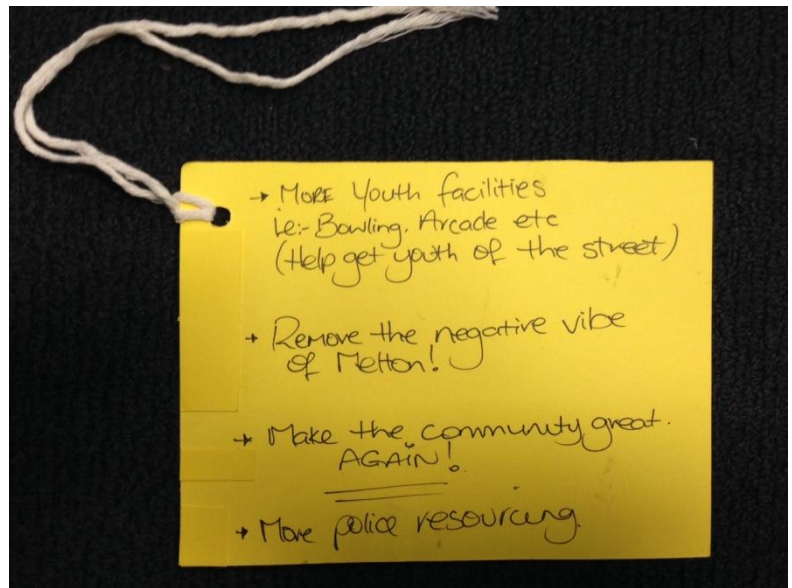 → MORE Youth facilities
i.e:- Bowling. Arcade etc
(Help get youth of the street)
→ Remove the negative vibe
of Melton!
→ Make the community great.
AGAIN!
→ More police resourcing.